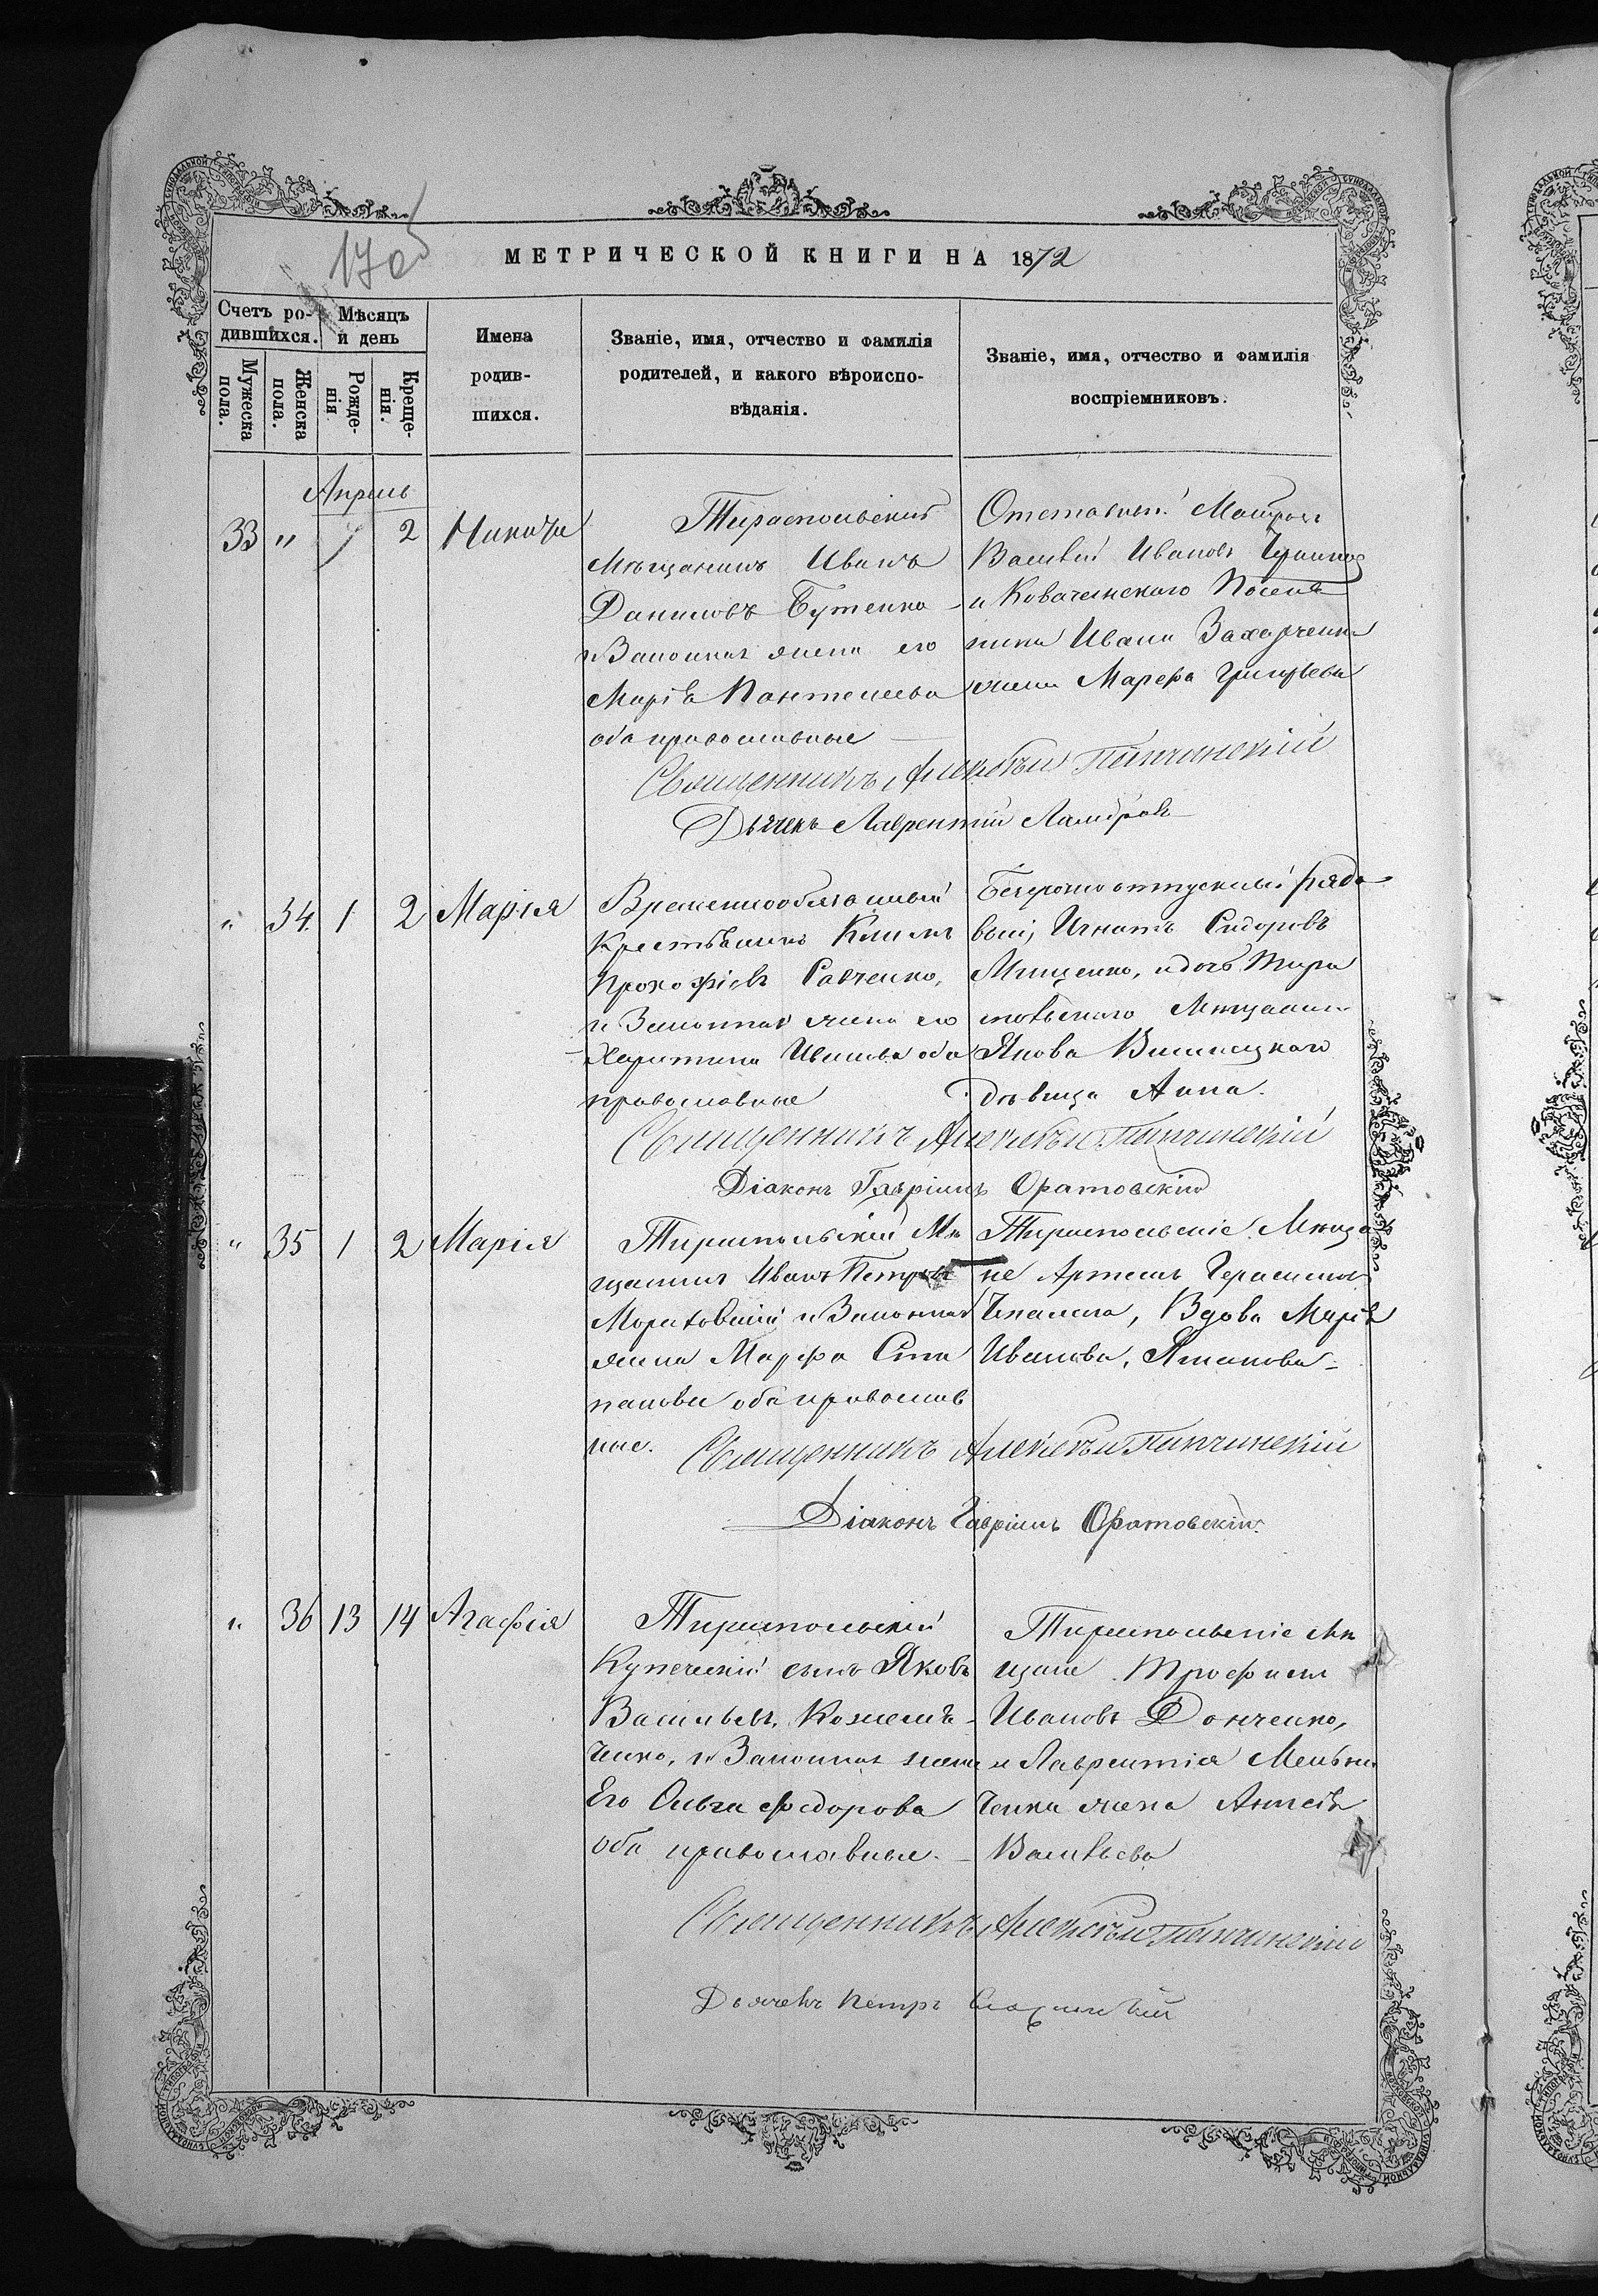 170б
МЕТРИЧЕСКОЙ КНИГИ НА 1872
Счетъ ро-
дившихся.
Мѣсяцъ
и день
Мужеска
пола.
Женска
пола.
Рожде-
нія
Креще-
нія.
Имена
родив-
шихся.
Званіе, имя, отчество и фамилія
родителей, и какого вѣроиспо-
вѣданія.
Званіе, имя, отчество и фамилія
воспріемниковъ.
Апрель
33 " 1 2 Никита
Тираспольскій
Мѣщанинъ Иванъ
Даниловъ Бутенко
и Законная жена его
Марія Пантелеева
оба православные
Отставный
Василій Ивановъ
и Ковалевскаго Поселя
нина Ивана Захарченка
жена Марфа Григорьева
Священникъ Алексѣй
Дьячекъ Лаврентій
" 34. 1 2 Марія
Временнообязанный
Крестьянинъ Климъ
Прокофіевъ Савченко,
и Законная жена его
Харитина Иванова оба
православные
Безсрочно отпускный рядо
вый, Игнатъ Сидоровъ
Мищенко, и дочь Тира
спольскаго Мѣщанина
Якова Вишницкаго
дѣвица Анна.
Священникъ Алексѣй
Діаконъ Гавріилъ Оратовскій
" 35 1 2 Марія
Тираспольскій Мѣ
щанинъ Иванъ Петровъ
и Законная
жена Марфа Сте
панова оба православ
ные.
Тираспольскіе Мѣща
не Артемъ Герасимовъ
Вдова Марія
Иванова,
Священникъ Алексѣй
Діаконъ Гавріилъ Оратовскій
" 36 13 14 Агафія
Тираспольскій
Купеческій сынъ Яковъ
Васильевъ, Кожемя-
ченко, и Законная жена
Его Ольга Федорова
оба православные.
Тираспольскіе Мѣ
щане Трофимъ
Ивановъ Донченко,
и Лаврентія Мельни
ченка жена Анисія
Васильева
Священникъ Алексѣй
Дьячекъ Петръ